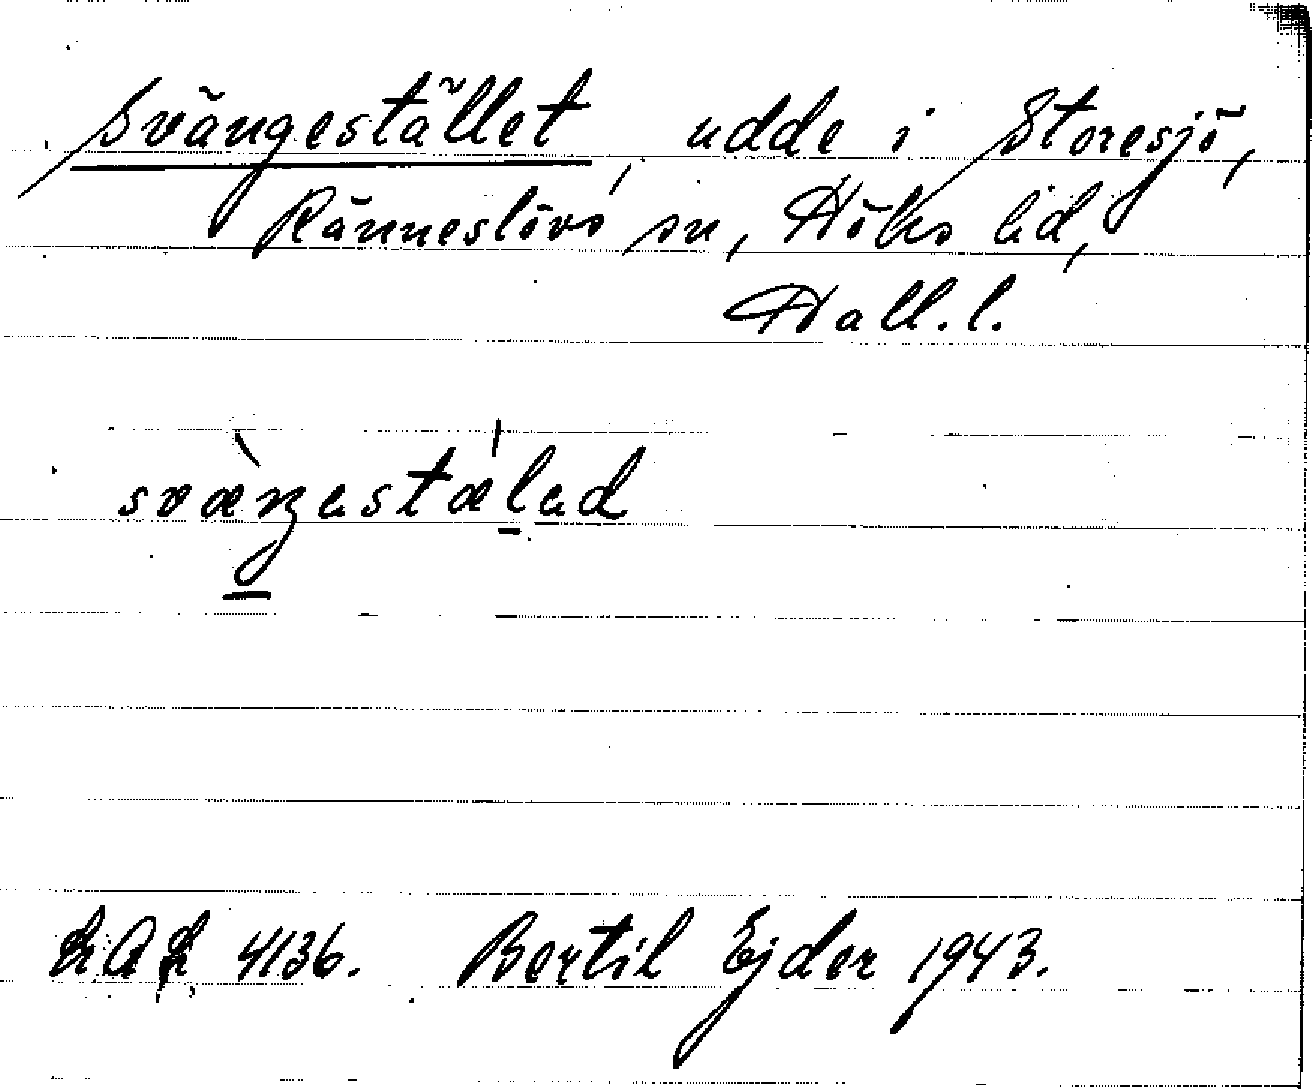 Svängestället, udde i Storesjö,
Ränneslövs sn, Höks hd,
Hall. l.
svæ̀ŋestæ̍led
LAL 4136. Bertil Ejder 1943.